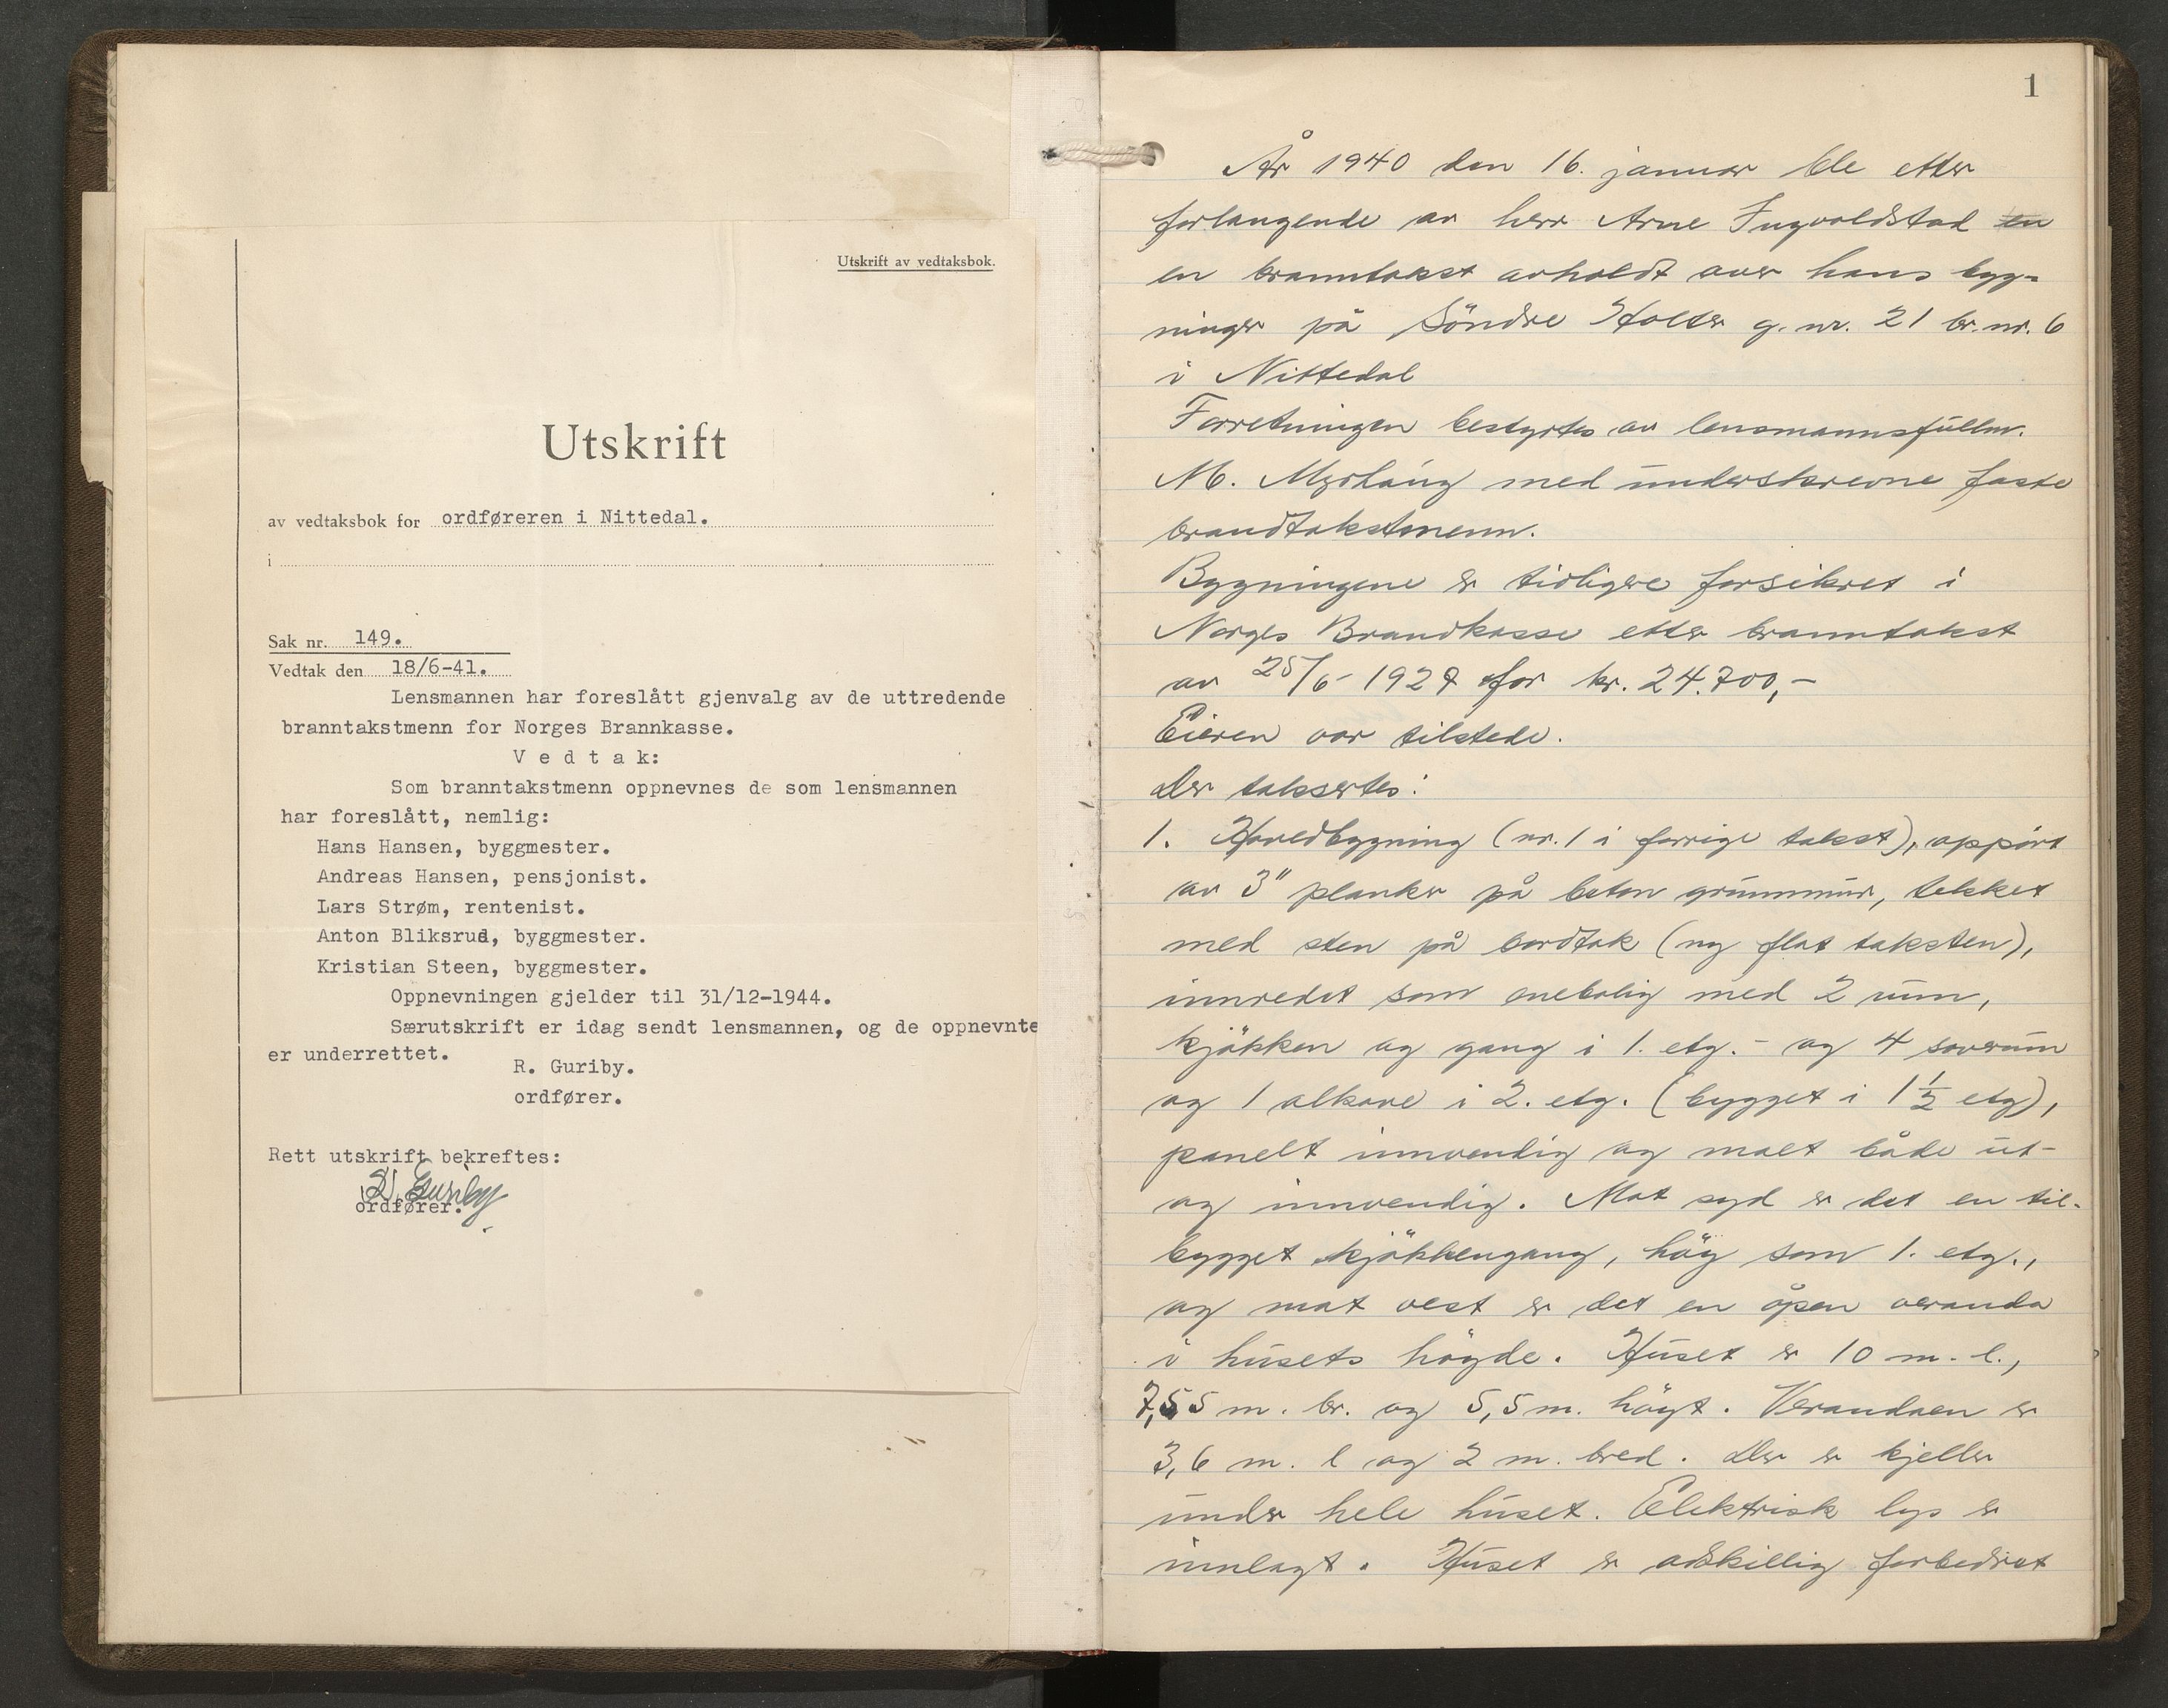 Utskrift av vedtaksbok.
Utskrift
av vedtaksbok for ordføreren i Nittedal.
i
Sak nr. 149.
Vedtak den 18/6-41.
Lensmannen har foreslått gjenvalg av de uttredende
branntakstmenn for Norges Brannkasse.
V e d t a k:
Som branntakstmenn oppnevnes de som lensmannen
har foreslått, nemlig:
Hans Hansen, byggmester.
Andreas Hansen, pensjonist.
Lars Strøm, rentenist.
Anton Bliksrud, byggmester.
Kristian Steen, byggmester.
Oppnevningen gjelder til 31/12-1944.
Særutskrift er idag sendt lensmannen, og de oppnevnte
er underrettet.
R. Guriby.
ordfører.
Rett utskrift bekreftes:
R. Guriby
ordfører.
1
År 1940 den 16. januar ble etter
forlangende av herr Arne Ingvoldstad en
en branntakst avholdt over hans byg-
ninger på Söndre Holter g. nr. 21 br. nr. 6
i Nittedal
Forretningen bestyrtes av lensmannsfullm.
M. Myrhaug med underskrevne faste
brandtakstmenn.
Bygningene er tidligere forsikret i
Norges Brandkasse etter branntakst
av 25/6- 1927 for kr. 24.700,-
Eieren var tilstede.
Der taksertes:
1. Hovedbygning (nr. 1 i forrige takst), oppört
av 3" planker på beton grunnmur, tekket
med sten på bordtak (ny flat taksten),
innredet som enebolig med 2 rum,
kjökken og gang i 1. etg. - og 4 soverum
og 1 alkove i 2. etg. (bygget i 1 1/2 etg),
panelt innvendig og malt både ut-
og innvendig. Mot syd er det en til-
bygget kjökkengang, höy som 1. etg.,
og mot vest er det en åpen veranda
i husets höyde. Huset er 10 m. l.,
7,55 m. br. og 5,5 m. höyt. Verandaen er
3,6 m. l og 2 m. bred. Der er kjeller
under hele huset. Elektrisk lys er
innlagt. Huset er adskillig forbedret